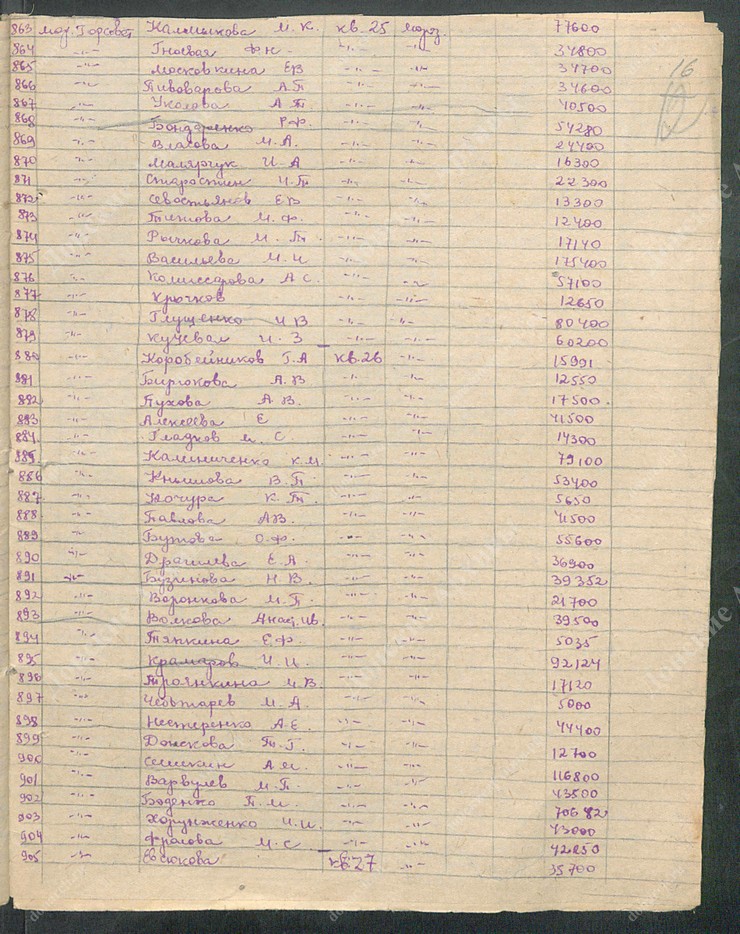 863 мор. Горсовет Калмыкова М. К. кв. 25 мороз. 77600
864 -"- Гноевая Ф Н -"- -"- 34800
865 -"- Московкина Е В -"- -"- 34700
866 -"- Пивоварова А. П -"- -"- 34600
867 -"- Уколова А П -"- -"- 40500
868 -"- Бондаренко Р. Ф. -"- -"- 54280
869 -"- Власова М. А. -"- -"- 24400
870 -"- Малярчук И. А -"- -"- 16300
871 -"- Старостин И. П -"- -"- 22300
872 -"- Севостьянов Е В -"- -"- 13300
873 -"- Титова М. Ф. -"- -"- 12400
874 -"- Рычкова М. П. -"- -"- 17140
875 -"- Васильева М. И -"- -"- 175400
876 -"- Комиссарова А С. -"- -"- 57100
877 -"- Крючков -"- -"- 12650
878 -"- Глущенко И В -"- -"- 80400
879 -"- Кучевал И. З -"- -"- 60200
880 -"- Коробейников Г. А кв. 26 -"- 15991
881 -"- Бирюкова А. В -"- -"- 12550
882 -"- Пухова А В. -"- -"- 17500
883 -"- Алексеева Е -"- -"- 41500
884 -"- Гладков М. С. -"- -"- 14300
885 -"- Калиниченко К. М. -"- -"- 79100
886 -"- В. П -"- -"- 53400
887 -"- Кочура К. П. -"- -"- 5650
888 -"- Павлова А В. -"- -"- 41500
889 -"- Бутова О. Ф. -"- -"- 55600
890 -"- Драчилева Е. А. -"- -"- 36900
891 -"- Бузинова Н. В. -"- -"- 39352
892 -"- Воронкова М. П. -"- -"- 21700
893 -"- Волкова Анас. Ив. -"- -"- 39500
894 -"- Тяпкина Е. Ф. -"- -"- 5035
895 -"- Крамаров И. И. -"- -"- 92124
896 -"- Троянкина И. В. -"- -"- 17120
897 -"- Чеботарев М. А -"- -"- 5000
898 -"- Нестеренко А. Е. -"- -"- 44400
899 -"- Донскова П. Г. -"- -"- 12700
900 -"- Семикин А. М. -"- -"- 116800
901 -"- Варвулев М. П. -"- -"- 43500
902 -"- Боденко П. М. -"- -"- 70682
903 -"- Хорунженко И. И. -"- -"- 43000
904 -"- Фролова М. С -"- -"- 42250
905 -"- Евсюкова кв 27 -"- 35700
16